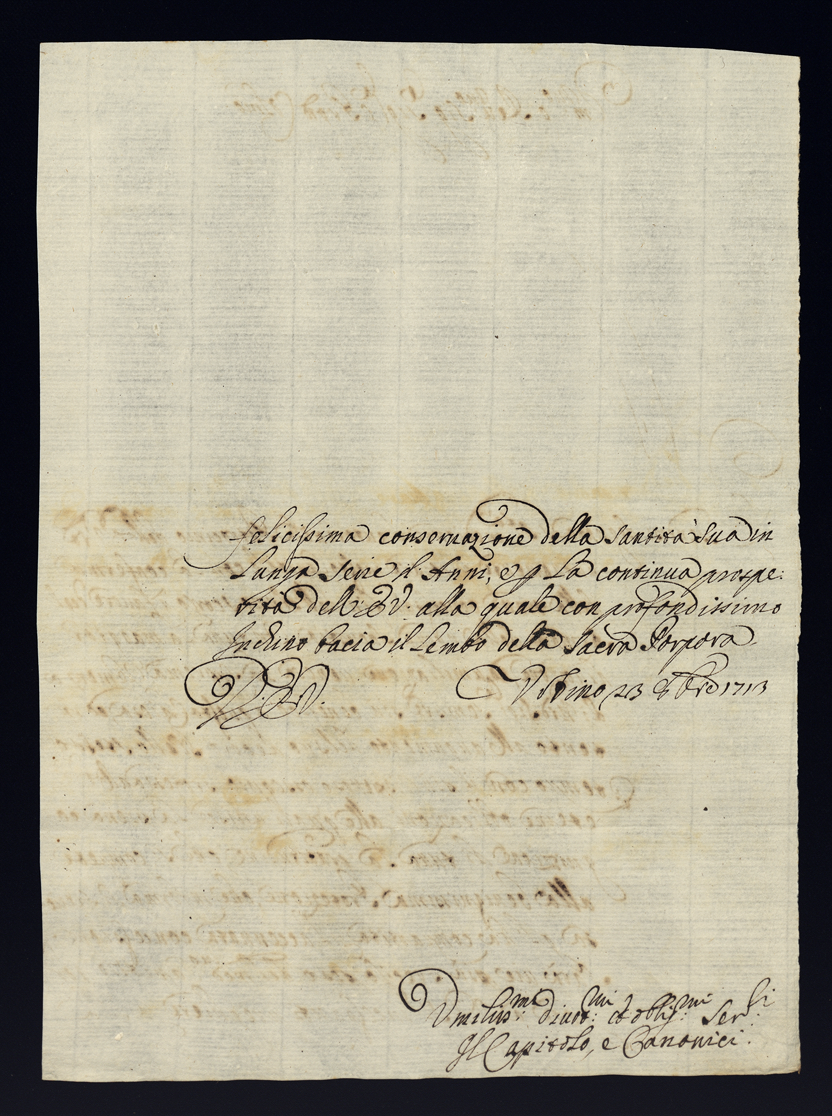 felicissima conseruazione della Santità Sua in
Lunga serie d'Anni, e p La continua prospe:
rità dell' E V. alla quale con profondissimo
Inchino bacia il Lembo della Sacra Porpora.
D. E. V. Vrbino 23 8bre 1713
Vmiliss:mi diuot:mi et obblig:mi Ser:ri
Il Capitolo, e Canonici